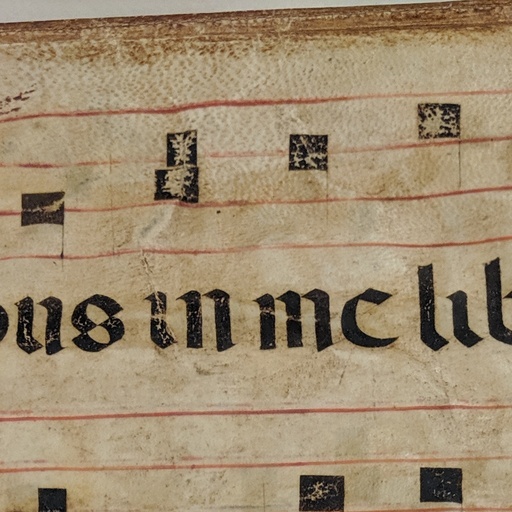 ous in me lib